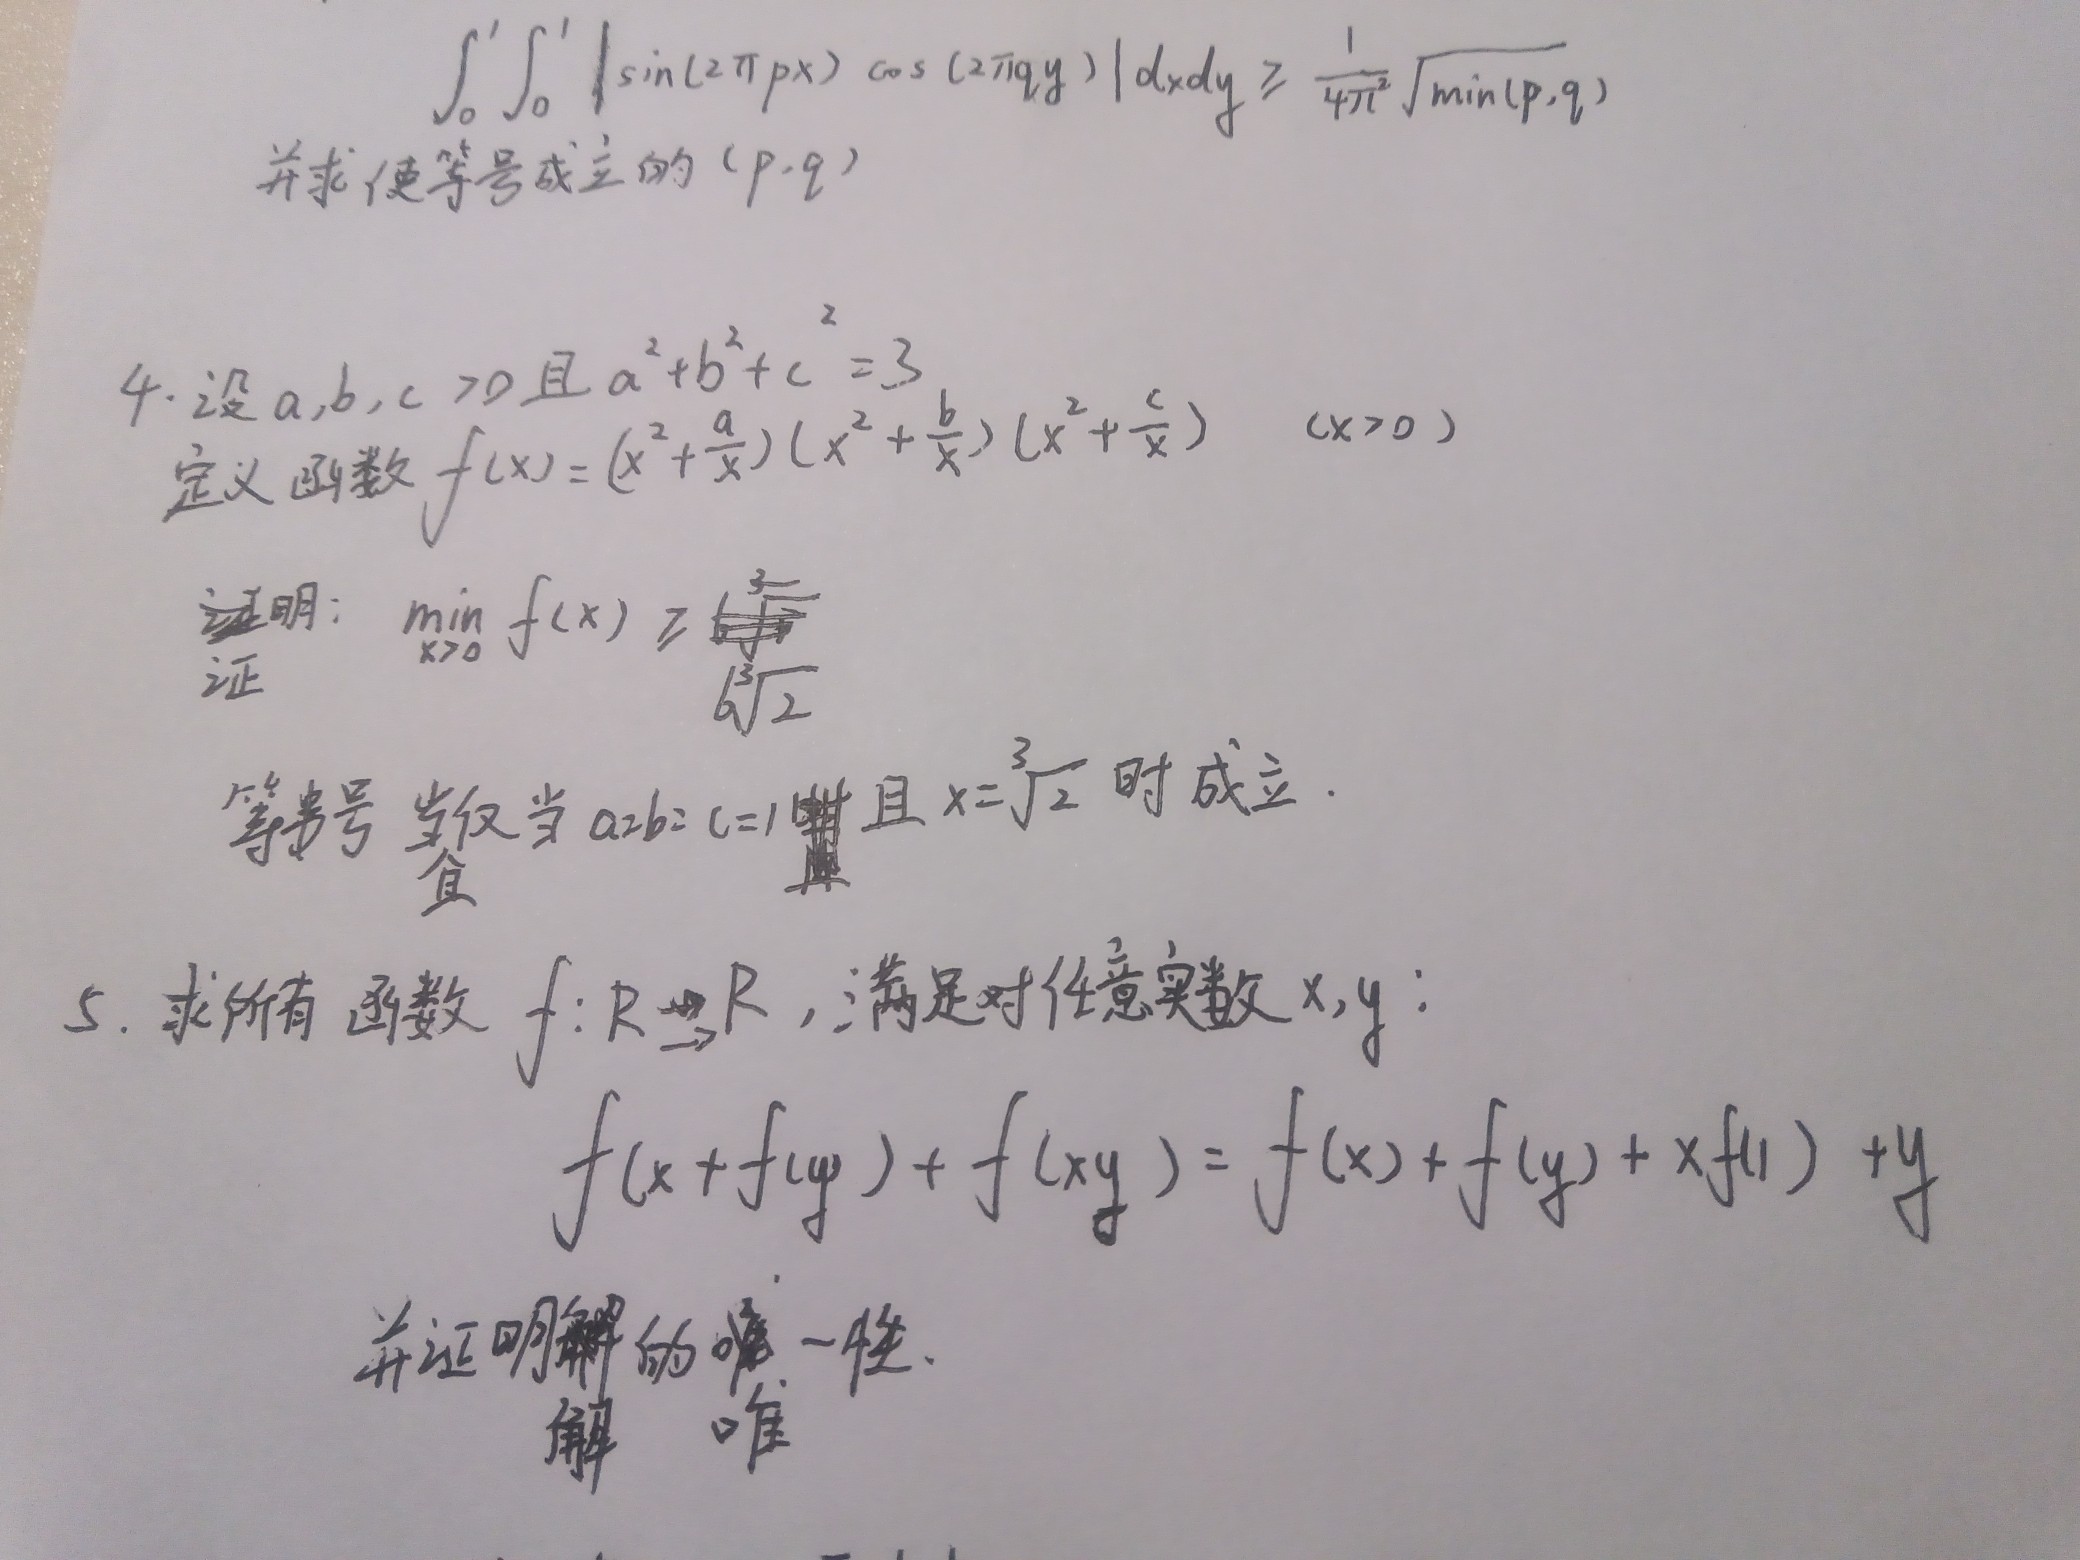 ∫₀¹∫₀¹|sin(2πpx) cos(2πqy)|dxdy ≥ 1/(4π²) √min(p,q)
并求使等号成立的(p,q)
4.设a,b,c>0且a²+b²+c²=3
定义函数f(x)=(x²+a/x)(x²+b/x)(x²+c/x) (x>0)
证明: min f(x) ≥
x>0
证 6∛2
等号当仅当a=b=c=1且x=∛2时成立.
且
5.求所有函数f:R→R,满足对任意实数x,y:
f(x+f(y))+f(xy)=f(x)+f(y)+xf(1)+y
并证明解的唯一性.
解 唯